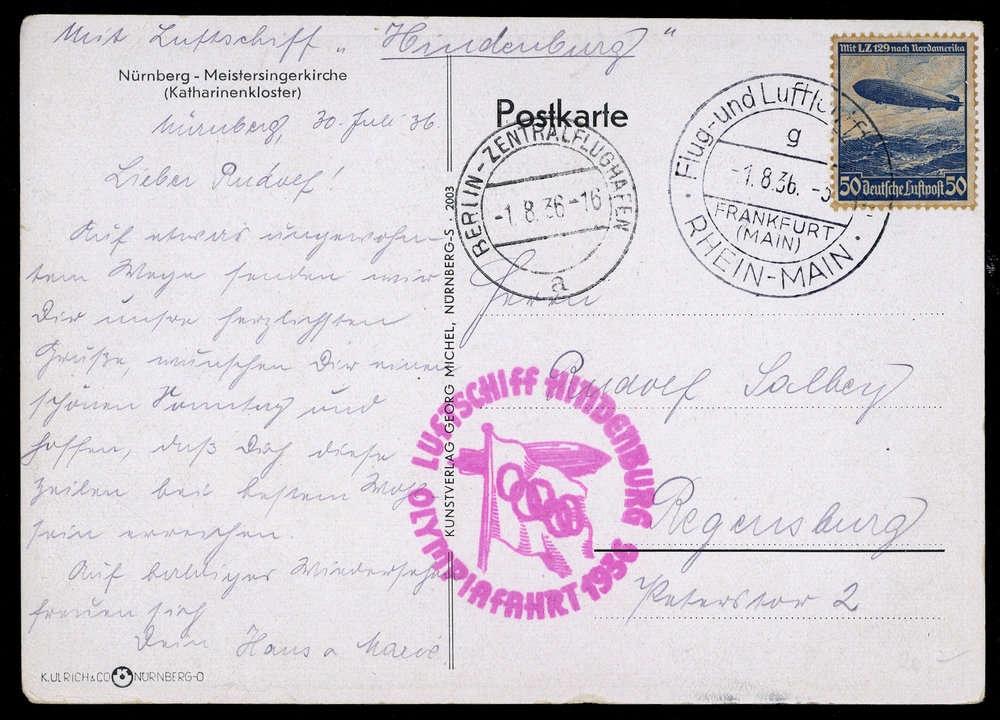 Mit Luftschiff „Hindenburg“
Nürnberg - Meistersingerkirche
(Katharinenkloster)
Nürnberg, 30. Juli 36.
Lieber Rudolf!
Auf etwas ungewohn-
tem Wege senden wir
Dir unsre herzlichsten
Grüße, wünschen Dir einen
schönen Sonntag und
hoffen, daß Dich diese
Zeilen bei bestem Wohl-
sein erreichen.
Auf baldiges Wiedersehn
freuen sich
Dein Hans u. Marie
K.ULRICH & CO NÜRNBERG-O
KUNSTVERLAG GEORG MICHEL, NÜRNBERG-S . 2003
Postkarte
BERLIN-ZENTRALFLUGHAFEN
-1.8.36-16
a
Flug- und Luftschiff
g
-1.8.36.
FRANKFURT
(MAIN)
RHEIN-MAIN
Mit LZ 129 nach Nordamerika
50 Deutsche Luftpost 50
Herrn
Rudolf Salbey
Regensburg
Peterstor 2
LUFTSCHIFF HINDENBURG
OLYMPIAFAHRT 1936